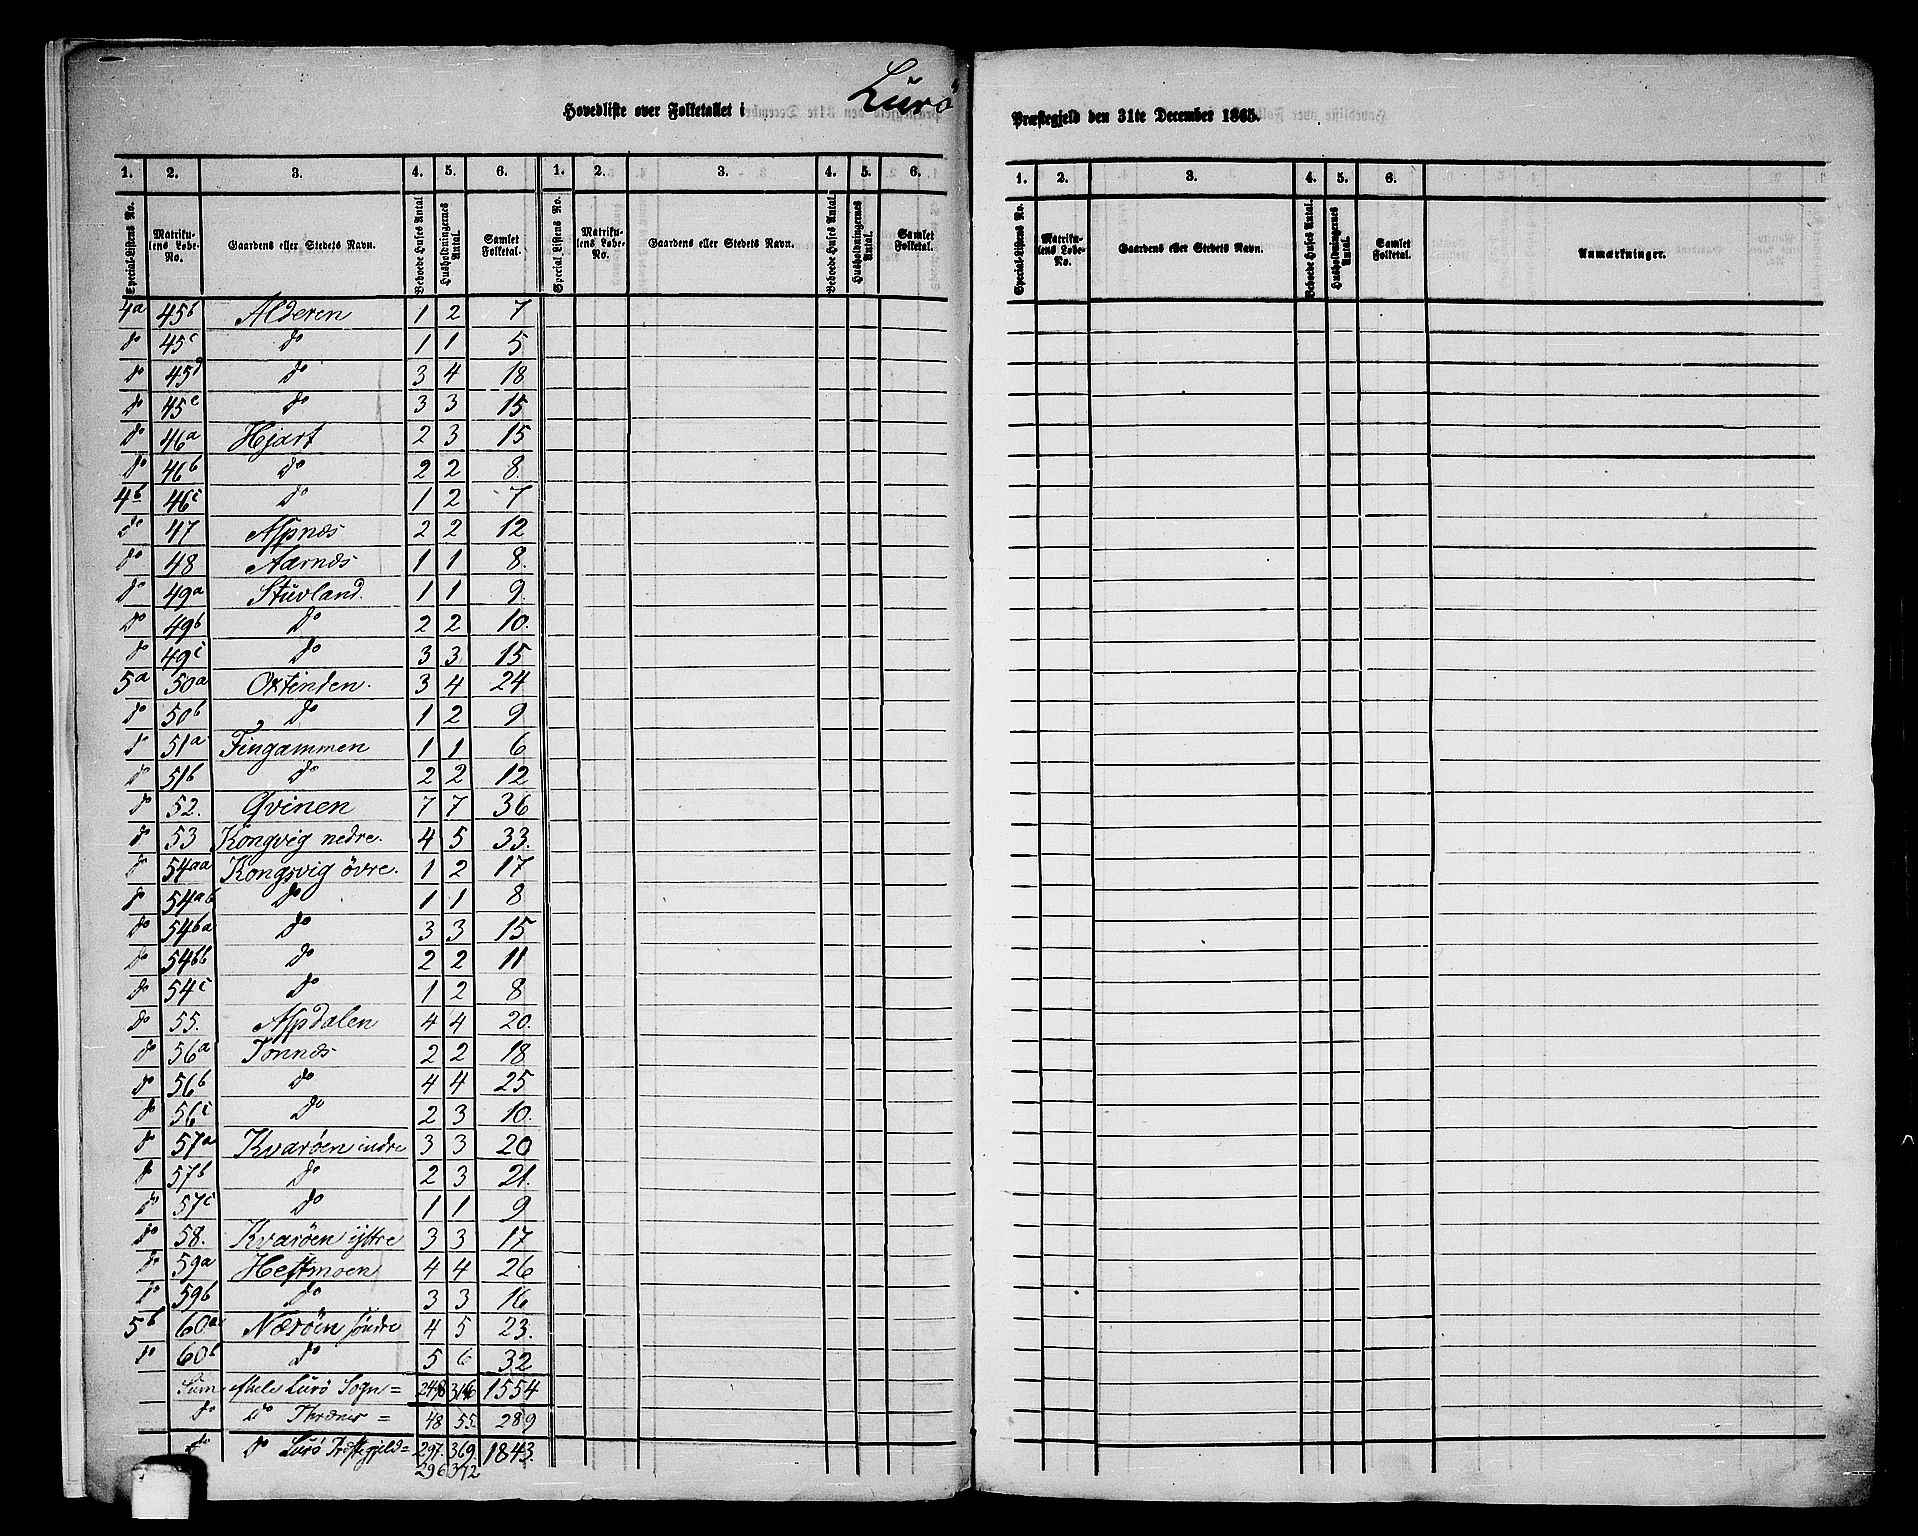 Hovedliste over Folketallet i Lurö Præstegjeld den 31te December 1865.
1. 2. 3. 4. 5. 6. 1. 2. 3. 4. 5. 6. 1. 2. 3. 4. 5. 6.
Special-Listens No. Matrikulens Løbe-No. Gaardens eller Stedets Navn. Beboede Huses Antal. Husholdningernes Antal. Samlet Folketal. Special-Listens No. Matrikulens Løbe-No. Gaardens eller Stedets Navn. Beboede Huses Antal. Husholdningernes Antal. Samlet Folketal. Special-Listens No. Matrikulens Løbe-No. Gaardens eller Stedets Navn. Beboede Huses Antal. Husholdningernes Antal. Samlet Folketal. Anmærkninger.
4a 45b Alderen 1 2 7
do 45c do 1 1 5
do 45d do 3 4 18
do 45e do 3 3 15
do 46a Hjart 2 3 15
do 46b do 2 2 8
4b 46c do 1 2 7
do 47 Aspnæs 2 2 12
do 48 Aarnæs 1 1 8.
do 49a Stuvland. 1 1 9.
do 49b do 2 2 10.
do 49c do 3 3 15
5a 50a Oxtinden. 3 4 24
do 50b do 1 2 9
do 51a Fingammen 1 1 6
do 51b do 2 2 12
do 52. Qvinen 7 7 36
do 53 Kongvig nedre. 4 5 33.
do 54aa Kongsvig övre. 1 2 17
do 54ab do 1 1 8
do 54ba do 3 3 15
do 54bb do 2 2 11
do 54c do 1 2 8
do 55. Aspdalen 4 4 20.
do 56a Tonnæs 2 2 18
do 56b do 4 4 25
do 56c do 2 3 10.
do 57a Kvaröen indre 3 3 20
do 57b do 2 3 21.
do 57c do 1 1 9
do 58. Kvaröen ÿttre 3 3 17
do 59a Hestmoen 4 4 26
do 59b do 3 3 16
5b 60a Næröen söndre 4 5 23.
do 60b do 5 6 32
Sum Lurö Sogn = 1554
do do Thrænes = 48 55 289
do do Lurö Præstegjeld = 297. 369. 1843.
296 372